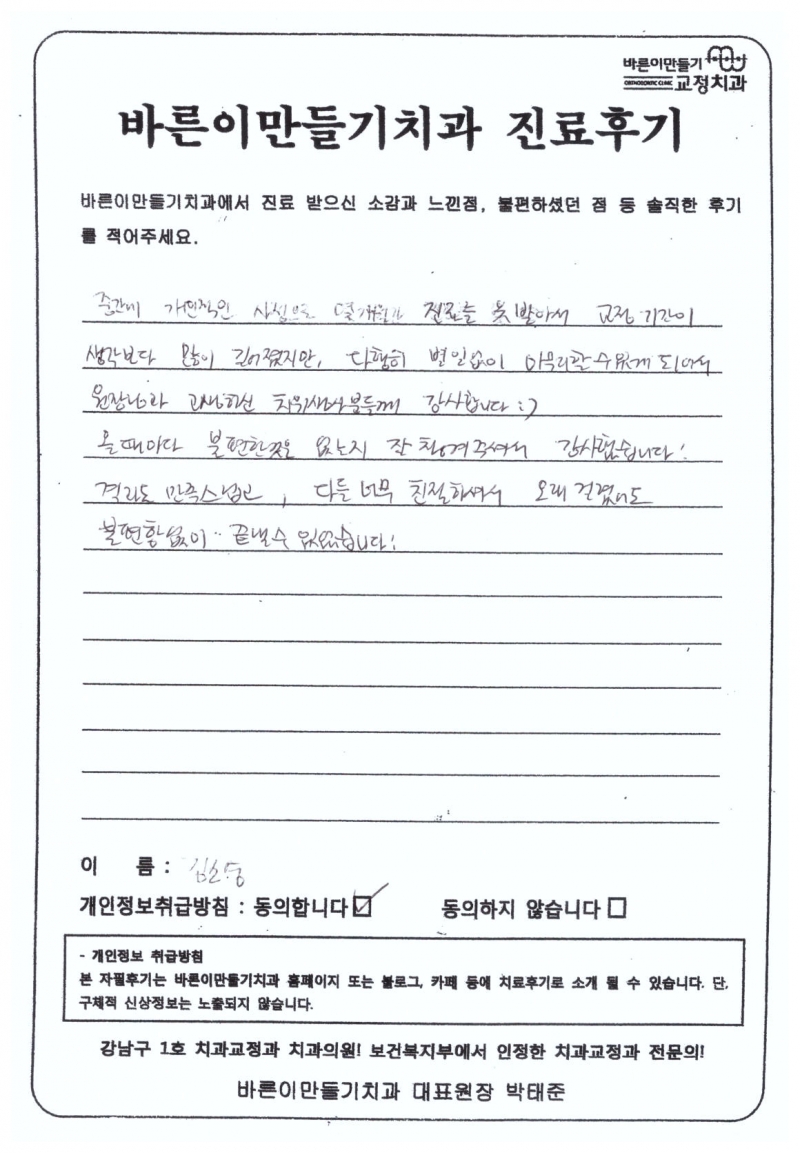 바른이만들기
ORTHODONTIC CLINIC 교정치과
바른이만들기치과 진료후기
바른이만들기치과에서 진료 받으신 소감과 느낀점, 불편하셨던 점 등 솔직한 후기
를 적어주세요.
중간에 개인적인 사정으로 몇개월간 진료를 못 받아서 교정 기간이
생각보다 많이 길어졌지만, 다행히 별일없이 마무리할수있게 되어서
원장님과 고생하신 치위생사분들께 감사합니다 :)
올때마다 불편한곳은 없는지 잘 챙겨주셔서 감사했습니다!
결과도 만족스럽고, 다들 너무 친절하셔서 오래 걸렸어도
불편함없이.. 끝낼수 있었습니다!
이 름 :
개인정보취급방침 : 동의합니다 ☑ 동의하지 않습니다 □
- 개인정보 취급방침
본 자필후기는 바른이만들기치과 홈페이지 또는 블로그, 카페 등에 치료후기로 소개 될 수 있습니다. 단,
구체적 신상정보는 노출되지 않습니다.
강남구 1호 치과교정과 치과의원! 보건복지부에서 인정한 치과교정과 전문의!
바른이만들기치과 대표원장 박태준